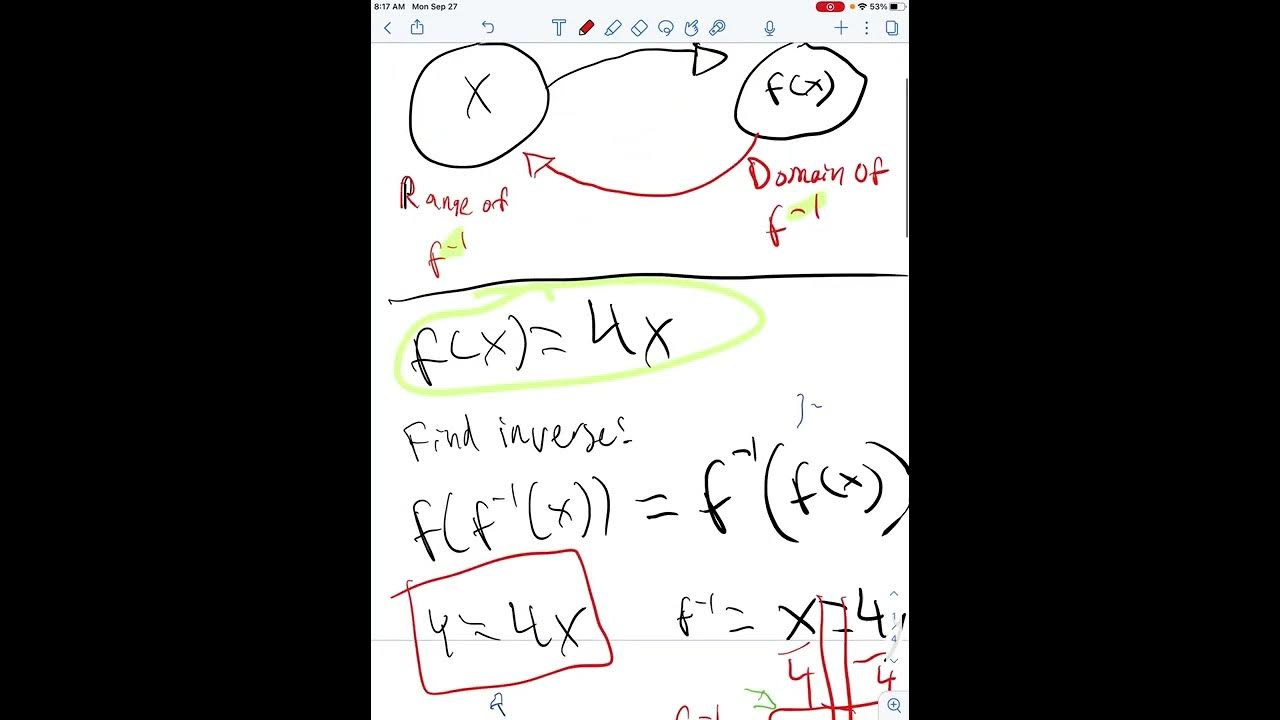 8:17 AM Mon Sep 27 53%
X f(x)
Range of
f⁻¹
Domain of
f⁻¹
f(x) = 4x
Find inverse:
f(f⁻¹(x)) = f⁻¹(f(x))
y = 4x
f⁻¹ = x = 4
4 4